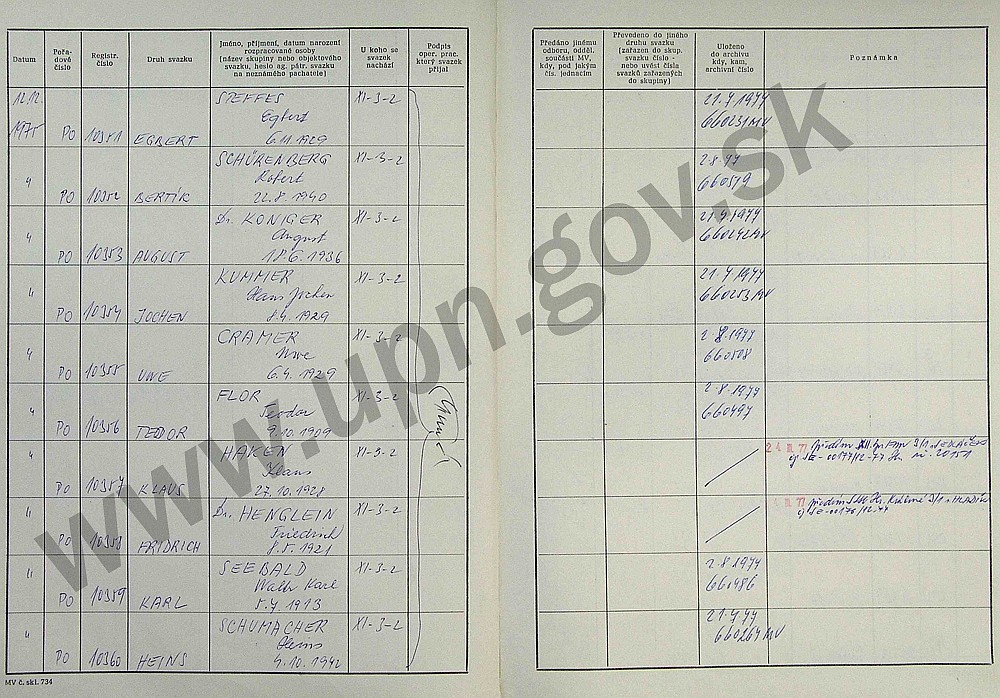 Datum
Pořa-
dové
číslo
Registr.
číslo
Druh svazku
Jméno, příjmení, datum narození
rozpracované osoby
(název skupiny nebo objektového
svazku, heslo ag. pátr. svazku
na neznámého pachatele)
U koho se
svazek
nachází
Podpis
oper. prac.
který svazek
přijal
Předáno jinému
odboru, odděl.
součásti MV,
kdy, pod jakým
čís. jednacím
Převedeno do jiného
druhu svazku
(zařazen do skup.
svazku číslo -
nebo uvést čísla
svazků zařazených
do skupiny)
Uloženo
do archivu
kdy, kam,
archivní číslo
Poznámka
12.12.
1975 PO 10351 EGBERT
STEFFES
Egbert
6.11.1929
XI-3-2
21.7.1977
660231MV
" PO 10352 BERTÍK
SCHÜRENBERG
Robert
22.8.1940
XI-3-2
2.8.77
660519
" PO 10353 AUGUST
Dr. KÖNIGER
August
18.6.1936
XI-3-2
21.7.1977
660242MV
" PO 10354 JOCHEN
KUMMER
Hans Jochen
8.4.1929
XI-3-2
21.7.1977
660253MV
" PO 10355 UWE
CRAMER
Uwe
6.4.1929
XI-3-2
2.8.1977
660508
" PO 10356 TEODOR
FLOR
Teodor
9.10.1909
XI-3-2
2.8.1977
660497
" PO 10357 KLAUS
HAKEN
Klaus
27.10.1928
XI-3-2
24. III. 77
čj SE-00177/12-77
20151
" PO 10358 FRIDRICH
Dr. HENGLEIN
Friedrich
8.5.1921
XI-3-2
III. 77
čj SE-00176/12-77
" PO 10359 KARL
SEEBALD
Walter Karl
5.7.1913
XI-3-2
2.8.1977
660486
" PO 10360 HEINS
SCHUMACHER
Heins
4.10.1942
XI-3-2
21.7.77
660264MV
MV č. skl. 734
www.upn.gov.sk